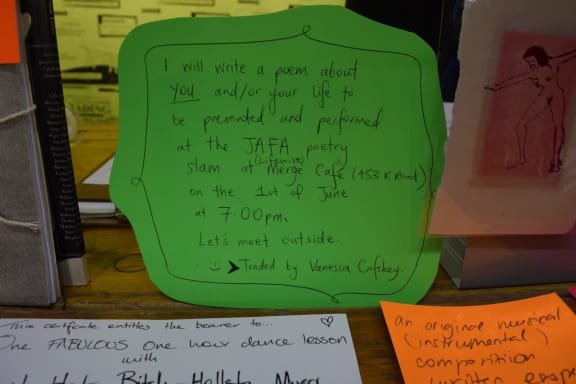 I will write a poem about
YOU and/or your life to
be presented and performed
at the JAFA poetry
(Litewise)
slam at Merge Café (453 K Road)
on the 1st of June
at 7.00pm.
Let's meet outside.
Traded by Vanessa
This certificate entitles the bearer to...
One FABULOUS one hour dance lesson
with
an original musical
(instrumental)
composition